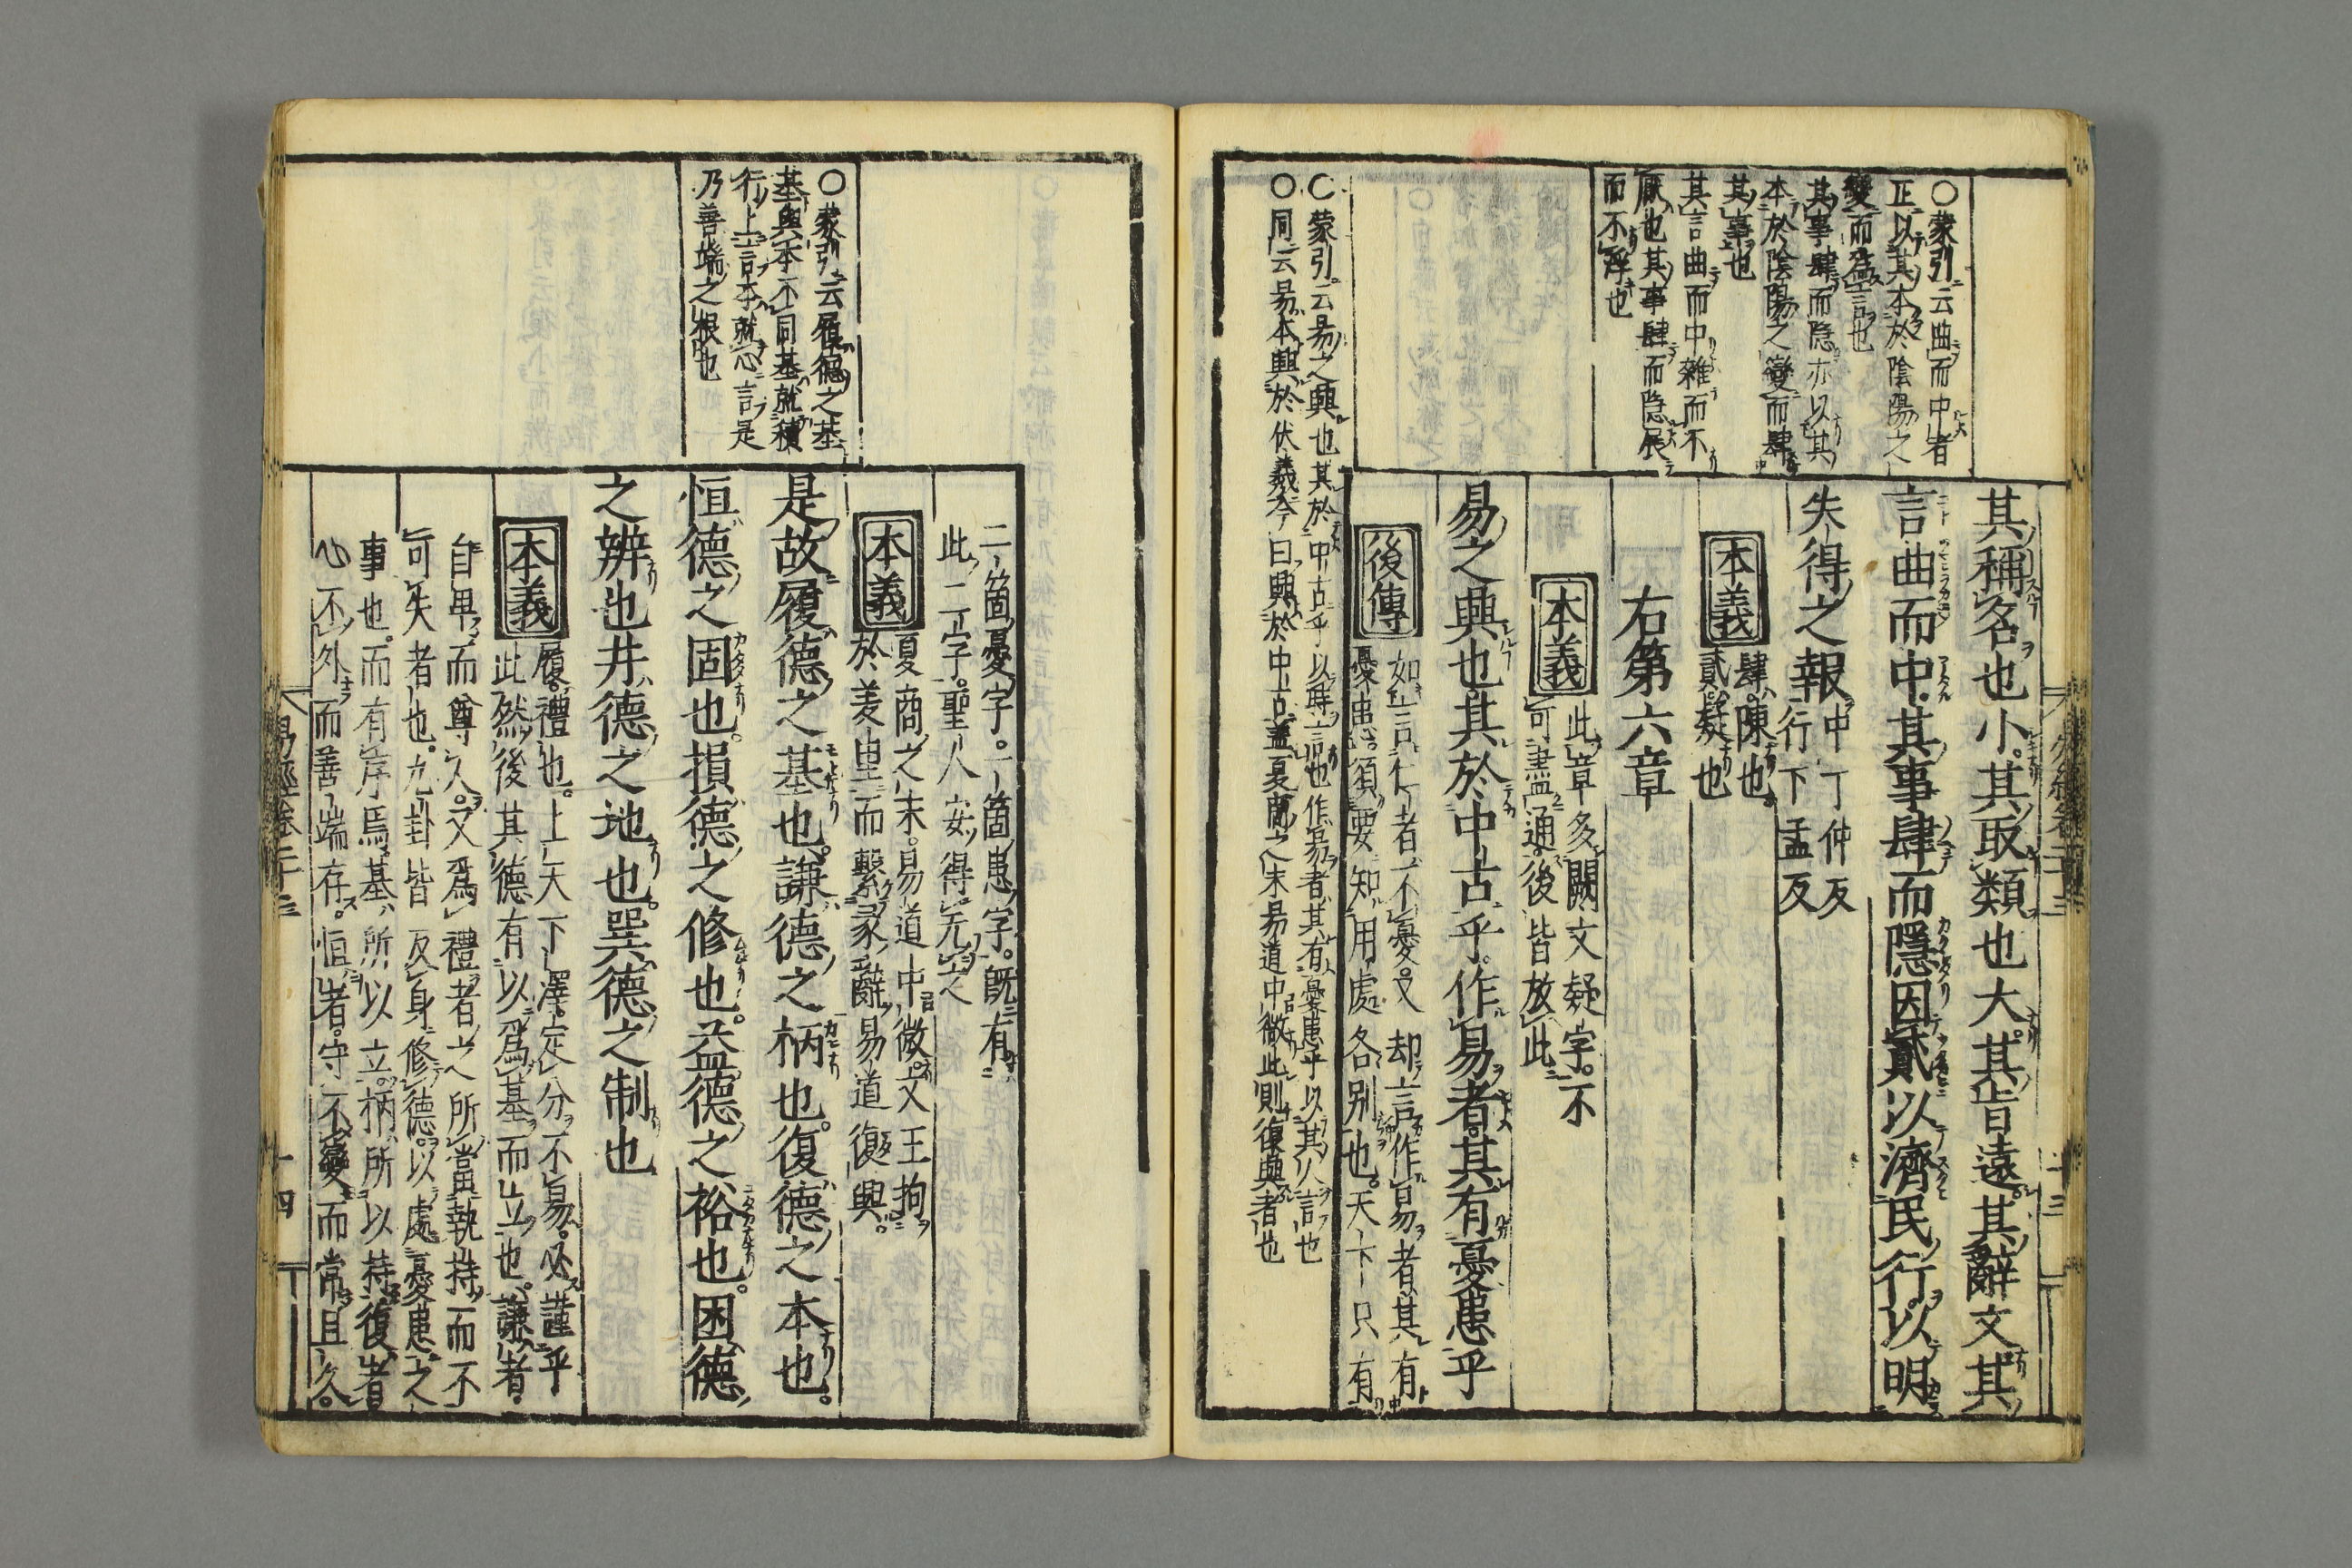 ○蒙引云曲而中者
正以其本於陰陽之
變而爲言也
其事肆而隱亦以其
本於陰陽之變而肆
其事也
其言曲而中雜而不
厭也其事肆而隱展
而不浮也
其稱名也小其取類也大其旨遠其辭文其
言曲而中其事肆而隱因貳以濟民行以明
失得之報
中丁仲反
行下孟反
本義
肆陳也
貳疑也
右第六章
本義
此章多闕文疑字不
可盡通後皆放此
易之興也其於中古乎作易者其有憂患乎
後傳
如言仁者不憂又却言作易者其有
憂患須要知用處各別也天下只有
○蒙引云易之興也其於中古乎以時言也作易者其有憂患乎以其人言也
○同云易本興於伏羲今曰興於中古蓋夏商之末易道中微此則復興者也
二箇憂字一箇患字既有
此二字聖人安得无之
本義
夏商之末易道中微文王拘
於羑里而繫彖辭易道復興
○蒙引云履德之基
基與本不同基就積
行上言本就心言是
乃善端之根也
是故履德之基也謙德之柄也復德之本也
恒德之固也損德之修也益德之裕也困德
之辨也井德之地也巽德之制也
本義
履禮也上天下澤定分不易必謹乎
此然後其德有以爲基而立也謙者
自卑而尊人又爲禮者之所當執持而不
可失者也九卦皆反身修德以處憂患之
事也而有序焉基所以立柄所以持復者
心不外而善端存恒者守不變而常且久
易經卷二十三
十四